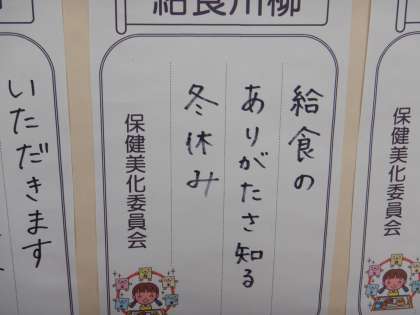 給食川柳
給食の
ありがたさ知る
冬休み
保健美化委員会
いただきます
保健美化委員会